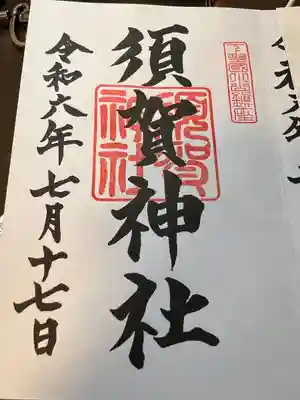 須賀神社
令和六年七月十七日